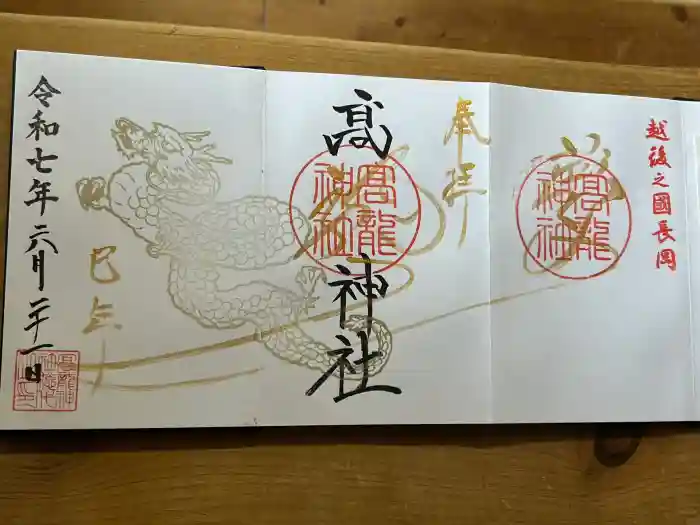 越後之國長岡
髙龍神社
奉拝
髙
神社
髙龍神社
巳年
令和七年六月二十一日